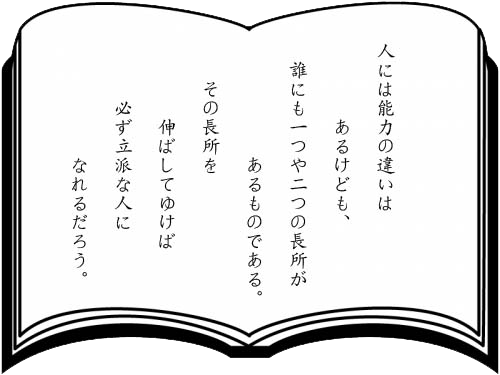 人には能力の違いは
あるけども、
誰にも一つや二つの長所が
あるものである。
その長所を
伸ばしてゆけば
必ず立派な人に
なれるだろう。